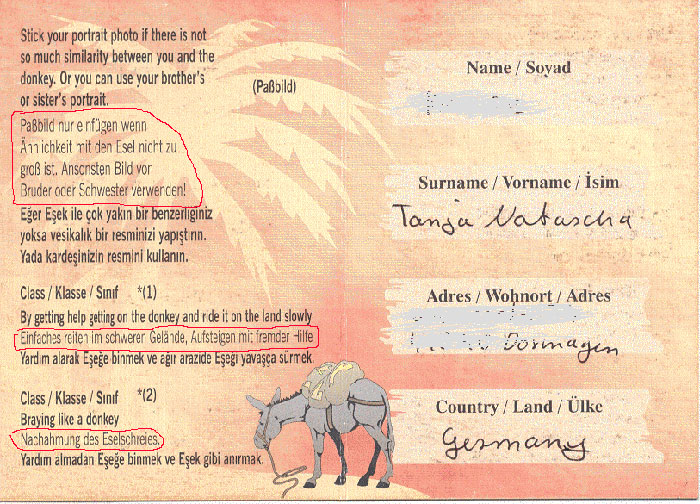 Stick your portrait photo if there is not
so much similarity between you and the
donkey. Or you can use your brother's
or sister's portrait.
(Paßbild)
Paßbild nur einfügen wenn
Ähnlichkeit mit den Esel nicht zu
groß ist. Ansonsten Bild vor
Bruder oder Schwester verwenden!
Eğer Eşek ile çok yakın bir benzerliğiniz
yoksa vesikalık bir resminizi yapıştırın.
Yada kardeşinizin resmini kullanın.
Class / Klasse / Sınıf *(1)
By getting help getting on the donkey and ride it on the land slowly
Einfaches reiten im schweren Gelände, Aufsteigen mit fremder Hilfe
Yardım alarak Eşeğe binmek ve ağır arazide Eşeği yavaşça sürmek
Class / Klasse / Sınıf *(2)
Braying like a donkey
Nachahmung des Eselschreies.
Yardım almadan Eşeğe binmek ve Eşek gibi anırmak.
Name / Soyad
Surname / Vorname / İsim
Tanja Natascha
Adres / Wohnort / Adres
Dormagen
Country / Land / Ülke
Germany